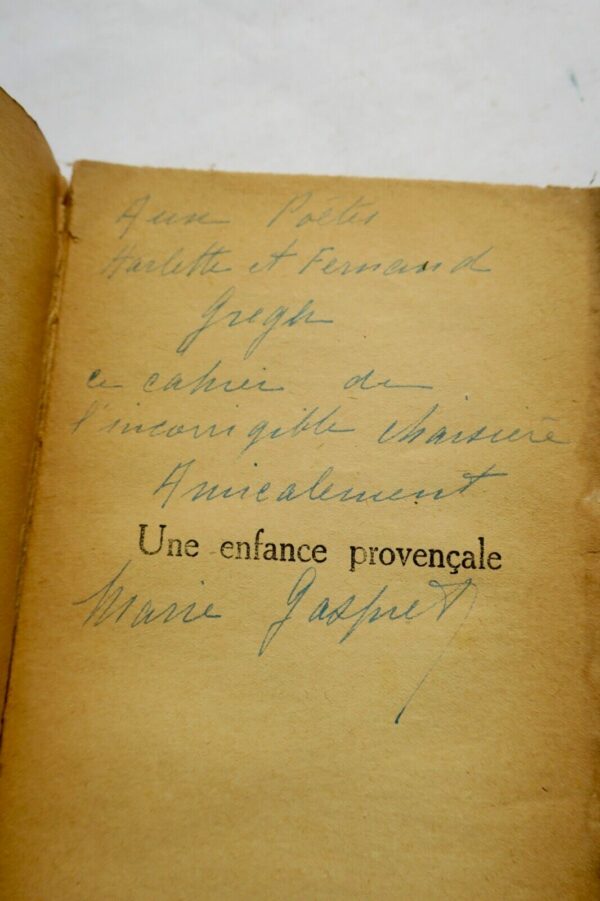 Aux Poètes
Harlette et Fernand
Gregh
ce cahier de
l'incorrigible chaisière
Amicalement
Une enfance provençale
Marie Gasquet